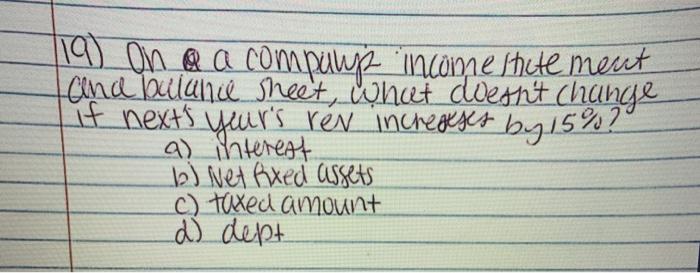 19) On a a company's income statement
and balance sheet, what doesn't change
if next's year's rev increases by 15%?
a) interest
b) Net fixed assets
c) taxed amount
d) dept